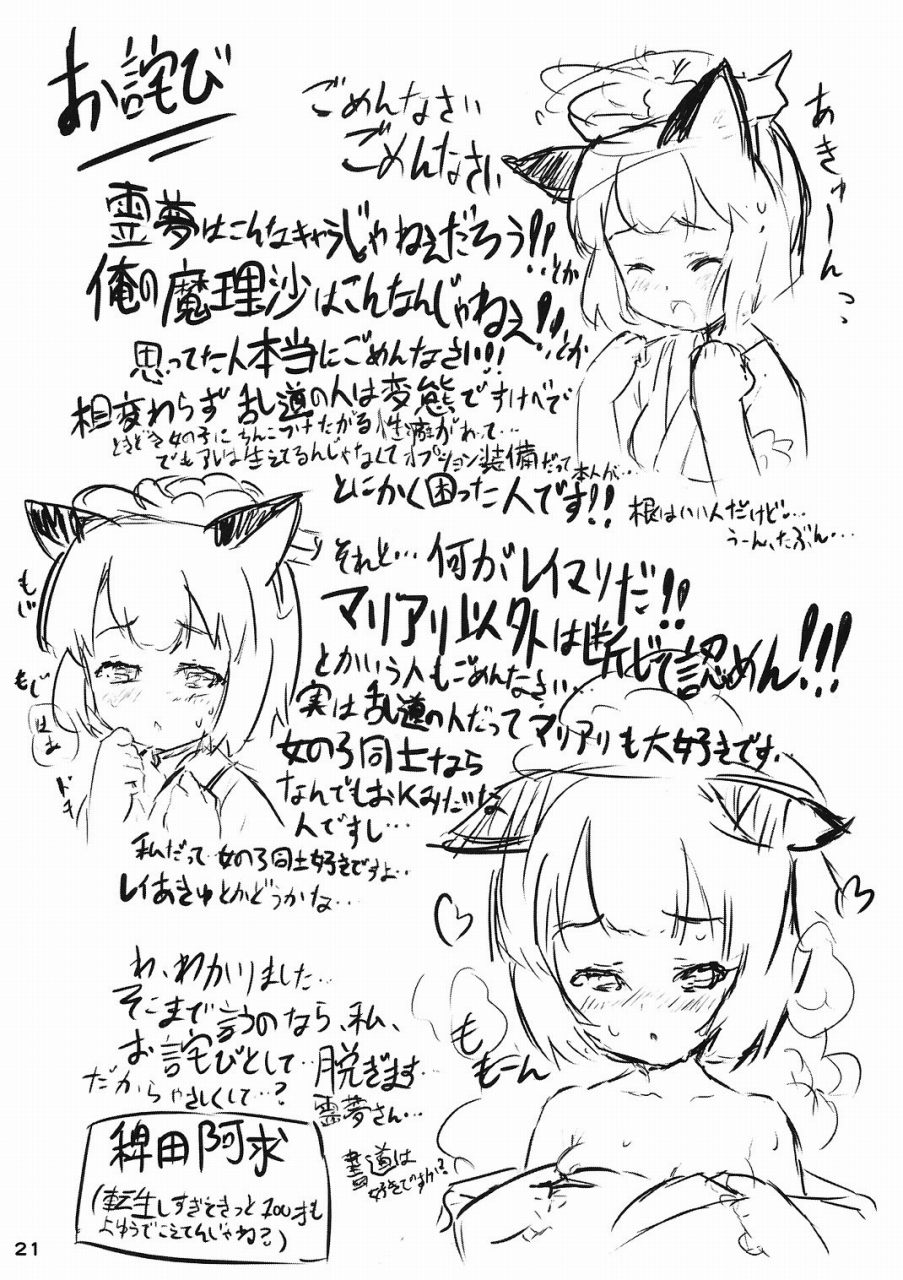 お詫び
ごめんなさい
ごめんなさい
あきゅーん
霊夢はこんなキャラじゃねえだろう!!とか
俺の魔理沙はこんなんじゃねぇ!!とか
思ってた人本当にごめんなさい!!!
相変わらず乱道の人は変態ですけべで
ときどき女の子にちんこつけたがる性癖があって…
でもアレは生えてるんじゃなくてオプション装備だって本人が…
とにかく困った人です!!
根はいい人だけど…
うーん、たぶん…
それと…何がレイマリだ!!
マリアリ以外は断じて認めん!!!
とかいう人もごめんなさい…
実は乱道の人だってマリアリも大好きです…
女の子同士なら
なんでもおKみたいな
人ですし…
もじ
もじ
はぁ
ドキ
私だって女の子同士好きですよ…
レイあきゅとかどうかな…
わ、わかりました…
そこまで言うのなら、私、
お詫びとして…脱ぎます…
だからやさしくして…?
霊夢さん…
書道は
好きですか?
も
もーん
稗田阿求
(転生しすぎてきっと200才も
よゆうでこえてんじゃね?)
21